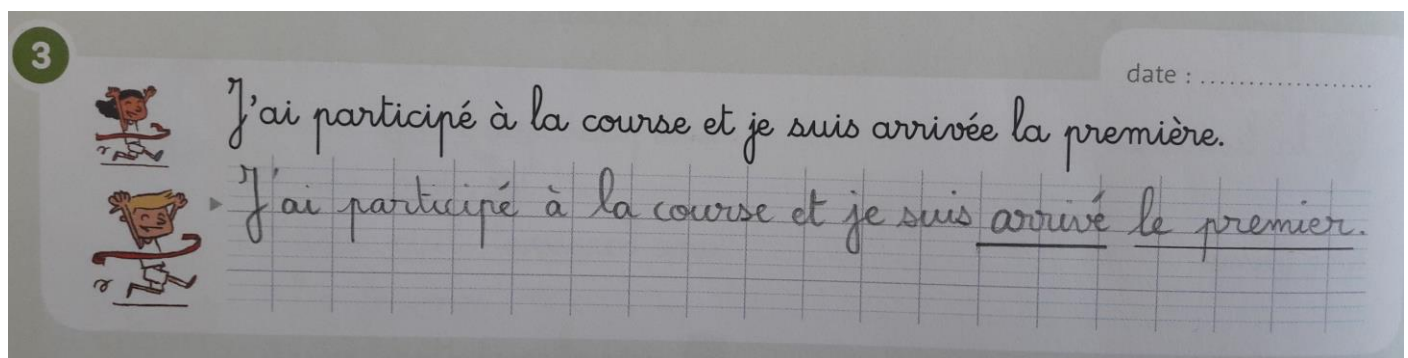 3
date : ....................
J'ai participé à la course et je suis arrivée la première.
J'ai participé à la course et je suis arrivé le premier.